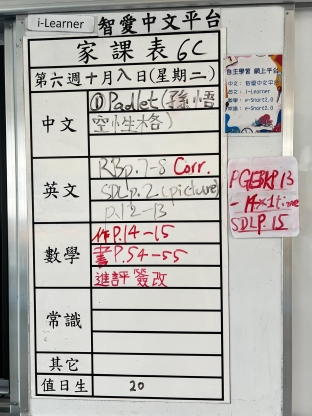 i-Learner 智愛中文平台
家課表 6C
第六週十月八日(星期二)
中文
①Padlet(孫悟
空性格)
英文
RBp.7-8 Corr.
SDLp.2(picture)
p.12-13
數學
作P.14-15
書P.54-55
進評簽改
常識
其它
值日生 20
自主學習 網上平台
中文：智愛中文平台
英文：i-Learner
數學：e-Smart2.0
常識：e-Smart2.0
- 14×1 time
SDLP.15